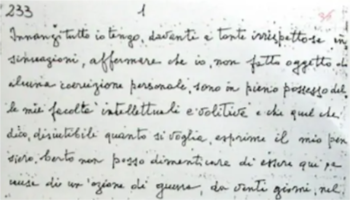 233 1 35
Innanzitutto io tengo, davanti a tante irrispettose in
sinuazioni, affermare che io, non fatto oggetto di
alcuna coercizione personale, sono in pieno possesso del
le mie facoltà intellettuali e volitive e che quel che
dico, discutibile quanto si voglia, esprime il mio pen
siero. Certo non posso dimenticare di essere qui, a
causa di un'azione di guerra, da venti giorni, nel